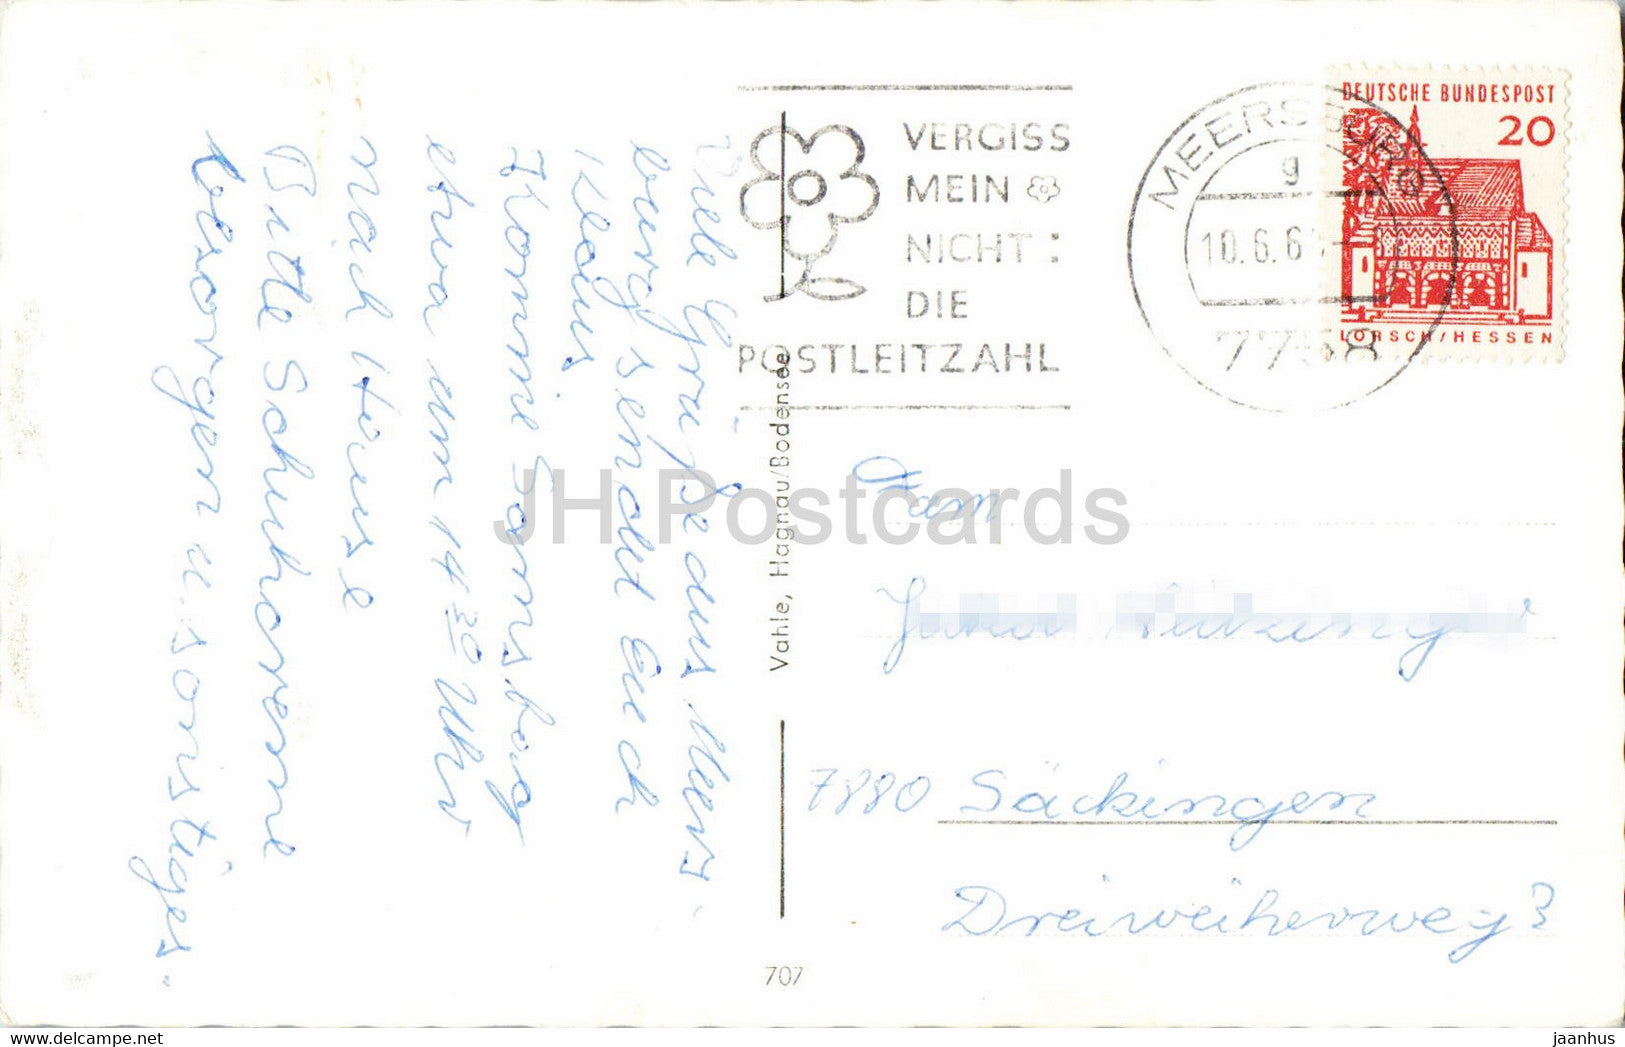 Viele Grüße aus Meers-
burg sendet Euch
Klaus
Komme Samstag
etwa um 14 30 Uhr
nach Hause
Bitte Schuhcreme
besorgen u. sonstiges.
VERGISS
MEIN
NICHT:
DIE
POSTLEITZAHL
MEERSBURG
g
10.6.6
7758
DEUTSCHE BUNDESPOST
20
LORSCH/HESSEN
Vahle, Hagnau/Bodensee
JH Postcards
Fam
7880 Säckingen
Dreiweiherweg 3
707
jaanhus